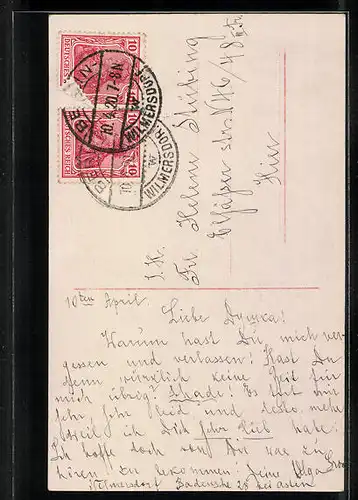 10
DEUTSCHES REICH
10
10
DEUTSCHES REICH
10
BERLIN
10.4.20.7-8N
W
WILMERSDORF
BERLIN
10
W
WILMERSDORF
I. H.
Frl. Helene
Elsässer str. N 46/48
Hier
10ten April.
Liebe Душка!
Warum hast Du mich ver-
gessen und verlassen! Hast Du
denn wirklich keine Zeit für
mich übrig? Schade! Es tut mir
sehr, sehr leid und desto mehr
weil ich Dich sehr lieb habe.
Ich hoffe doch von Dir was zu
hören zu bekommen. Deine Olga
Wilmersdorf Badensche 20 bei